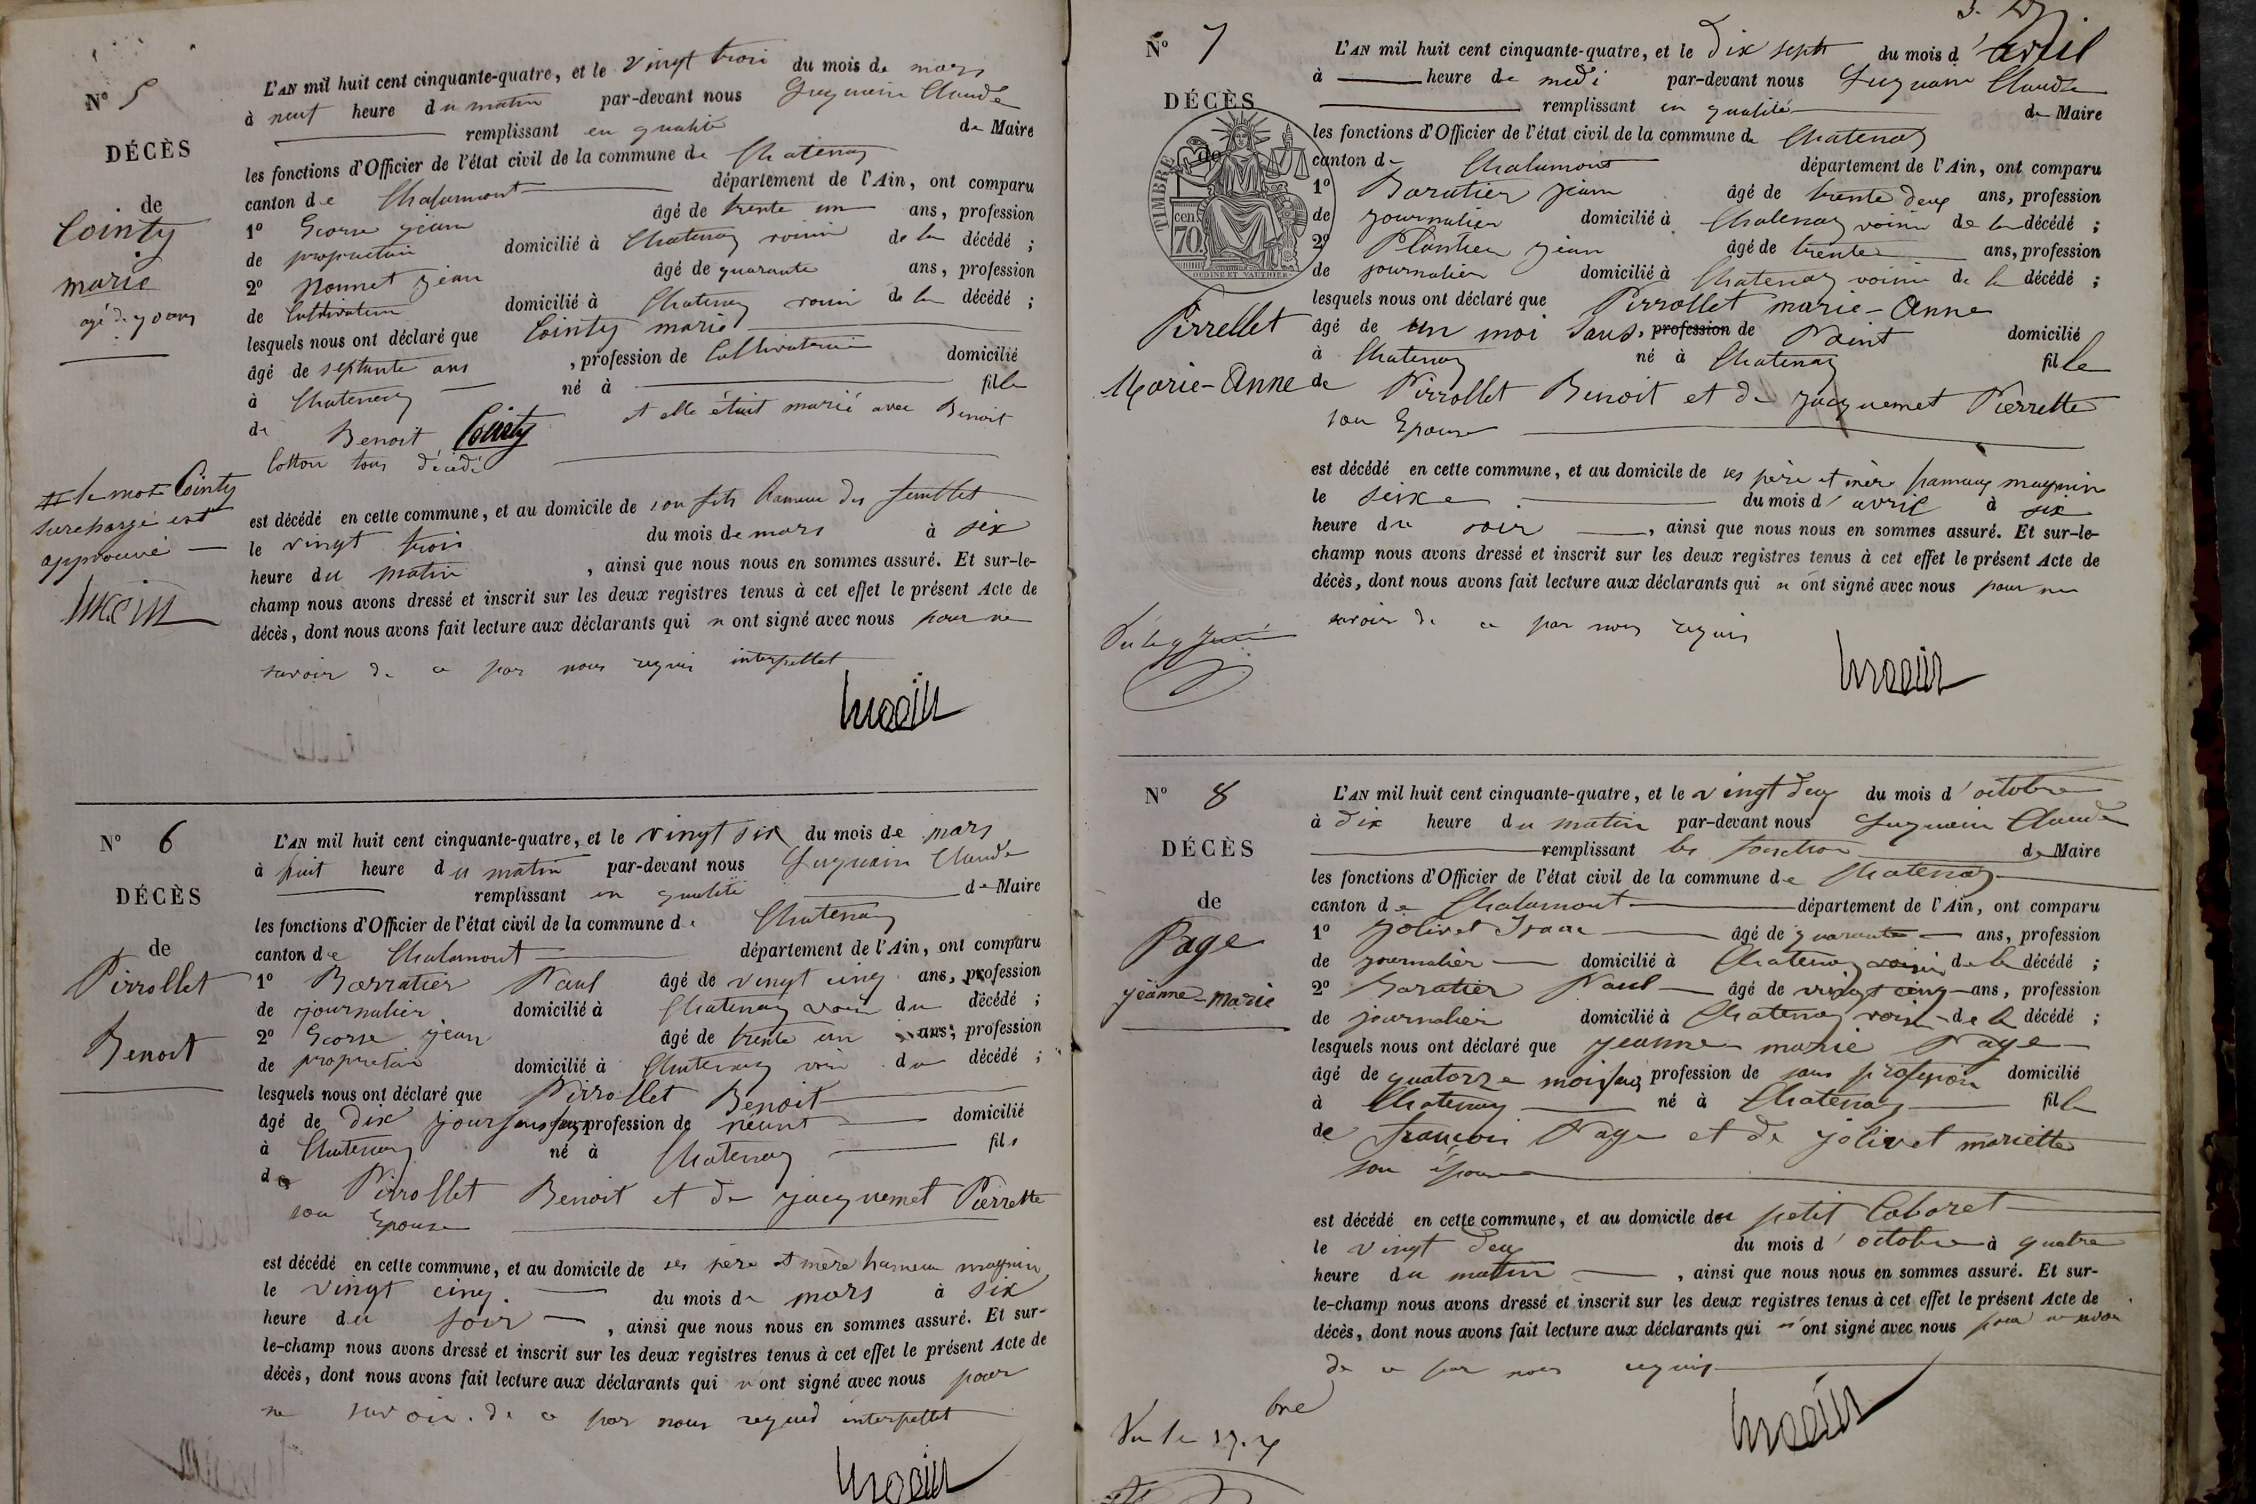 N° 5
DÉCÈS
de
Cointy
marie
agé de 70 ans
# le mot Cointy
surchargé est
approuvé
L'AN mil huit cent cinquante-quatre, et le vingt trois du mois de mars
à neuf heure du matin par-devant nous Claude
remplissant en qualité de Maire
les fonctions d'Officier de l'état civil de la commune de Chatenay
canton de Chalamont département de l'Ain, ont comparu
1° jean âgé de trente un ans, profession
de propriétair domicilié à Chatenay voisin de la décédé ;
2° jean âgé de quarante ans, profession
de Cultivateur domicilié à Chatenay voisin de la décédé ;
lesquels nous ont déclaré que Cointy marie
âgé de septante ans , profession de Cultivateur domicilié
à Chatenay né à fille
de Benoit Cointy et elle était marié avec Benoit
Cotton tous décédé
est décédé en cette commune, et au domicile de son fils
le vingt trois du mois de mars à six
heure du matin , ainsi que nous nous en sommes assuré. Et sur-le-
champ nous avons dressé et inscrit sur les deux registres tenus à cet effet le présent Acte de
décès, dont nous avons fait lecture aux déclarants qui n ont signé avec nous pour ne
savoir de ce par nous requis interpellet
N° 6
DÉCÈS
de
Pirrollet
Benoit
L'AN mil huit cent cinquante-quatre, et le vingt six du mois de mars
à huit heure du matin par-devant nous Claude
remplissant en qualité de Maire
les fonctions d'Officier de l'état civil de la commune de Chatenay
canton de Chalamont département de l'Ain, ont comparu
1° Barratier Paul âgé de vingt cinq ans, profession
de journalier domicilié à Chatenay voisin du décédé ;
2° jean âgé de trente un ans, profession
de propriétair domicilié à Chatenay voisin du décédé ;
lesquels nous ont déclaré que Pirrollet Benoit
âgé de dix jours profession de néant domicilié
à Chatenay né à Chatenay fils
de Pirrollet Benoit et de jacquemet Pierrette
son Epouse
est décédé en cette commune, et au domicile de ses père et mère hameau magnin
le vingt cinq du mois de mars à six
heure du soir , ainsi que nous nous en sommes assuré. Et sur-
le-champ nous avons dressé et inscrit sur les deux registres tenus à cet effet le présent Acte de
décès, dont nous avons fait lecture aux déclarants qui n ont signé avec nous pour
ne savoir de ce par nous interpellet
N° 7
DÉCÈS
de
TIMBRE
cen
70.
OUDINÉ ET VAUTHIER
Pirrellet
Marie-Anne
L'AN mil huit cent cinquante-quatre, et le dix sept du mois d'avril
à heure de medi par-devant nous Claude
remplissant en qualité de Maire
les fonctions d'Officier de l'état civil de la commune de Chatenay
canton de Chalamont département de l'Ain, ont comparu
1° Baratier jean âgé de trente deux ans, profession
de journalier domicilié à Chatenay voisin de la décédé ;
2° Plantier jean âgé de trente ans, profession
de journalier domicilié à Chatenay voisin de la décédé ;
lesquels nous ont déclaré que Pirrollet marie-Anne
âgé de un moi sans, profession de Néint domicilié
à Chatenay né à Chatenay fille
de Pirrollet Benoit et de jacquemet Pierrette
son Epouse
est décédé en cette commune, et au domicile de ses père et mère hameau magnin
le seize du mois d'avril à six
heure du soir , ainsi que nous nous en sommes assuré. Et sur-le-
champ nous avons dressé et inscrit sur les deux registres tenus à cet effet le présent Acte de
décès, dont nous avons fait lecture aux déclarants qui n ont signé avec nous pour ne
savoir de ce par nous requis
N° 8
DÉCÈS
de
Page
jeanne-marie
L'AN mil huit cent cinquante-quatre, et le vingt deux du mois d'octobre
à dix heure du matin par-devant nous Claude
remplissant les fonction de Maire
les fonctions d'Officier de l'état civil de la commune de Chatenay
canton de Chalamont département de l'Ain, ont comparu
1° jolivet Isaac âgé de quarante ans, profession
de journalier domicilié à Chatenay voisin de la décédé ;
2° Baratier Paul âgé de vingt cinq ans, profession
de journalier domicilié à Chatenay voisin de la décédé ;
lesquels nous ont déclaré que jeanne marie Page
âgé de quatorze mois profession de sans profession domicilié
à Chatenay né à Chatenay fille
de françois Page et de jolivet mariette
son épouse
est décédé en cette commune, et au domicile du petit Cabaret
le vingt deux du mois d'octobre à quatre
heure du matin , ainsi que nous nous en sommes assuré. Et sur-
le-champ nous avons dressé et inscrit sur les deux registres tenus à cet effet le présent Acte de
décès, dont nous avons fait lecture aux déclarants qui n'ont signé avec nous pour ne savoir
de ce par nous requis